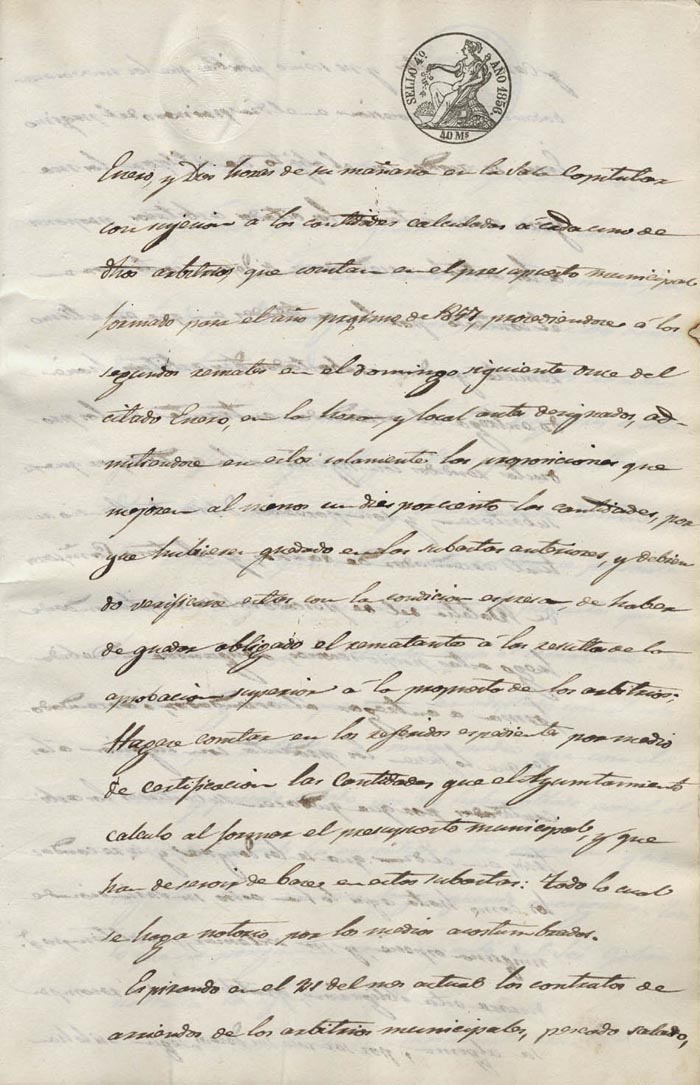 SELLO 4º AÑO 1856.
40 Ms
Enero, y Diez horas de su mañana en la Sala Capitular
con sujecion á las cantidades calculadas á cada uno de
dhos arbitrios, que constan en el presupuesto municipal
formado para el año prosimo de 1857, procediendose á los
segundos remates en el domingo siguiente once del
citado Enero, en la hora y local antes designados, ad-
mitiendose en ellos solamente las proposiciones que
mejoren al menos un diez por ciento las cantidades, por
que hubiesen quedado en las subastas anteriores, y debien
do verificarse estas con la condicion espresa, de haber
de quedar obligado el rematante á las resultas de la
aprobacion superior á la propuesta de los arbitrios;
Hagase constar en los referidos espedientes por medio
de certificacion las cantidades que el Ayuntamiento
calculo al formar el presupuesto municipal, y que
han de servir de bases en estas subastas: todo lo cual
se haga notorio por los medios acostumbrados.
Espirando en el 31 del mes actual los contratos de
arriendos de los arbitrios municipales, pescado salado,